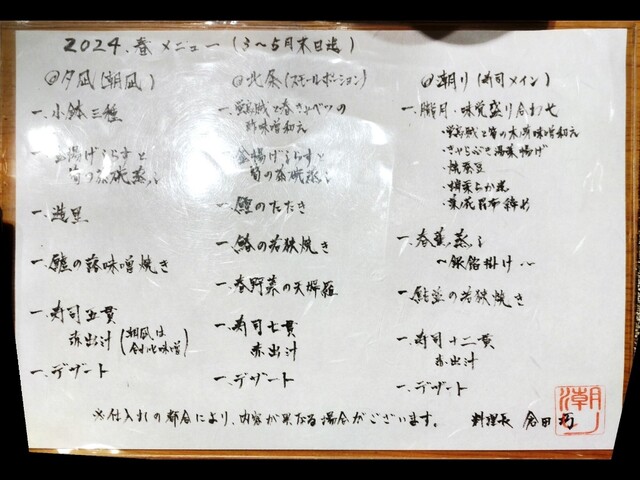 2024.春メニュー(3〜5月末日迄)
◎夕凪(朝凪)
一.小鉢三種
一.釜揚げしらすと
筍の茶碗蒸し
一.造里
一.鰆の蕗味噌焼き
一.寿司五貫
赤出汁(朝凪は合せ味噌)
一.デザート
◎北条(スモールポーション)
一.蛍烏賊と春きゃべつの
酢味噌和え
釜揚げしらすと
筍の茶碗蒸し
一.鰹のたたき
一.鰆の若狭焼き
一.春野菜の天婦羅
一.寿司七貫
赤出汁
一.デザート
◎潮り(寿司メイン)
一.朧月・味覚盛り合わせ
・蛍烏賊と筍の木の芽味噌和え
・きゃらぶき湯葉揚げ
・焼蚕豆
・菜花昆布締め
一.春蕪蒸し
〜銀餡掛け〜
若狭焼き
一.寿司十二貫
赤出汁
一.デザート
※仕入れの都合により、内容が異なる場合がございます。
料理長 倉田
潮り